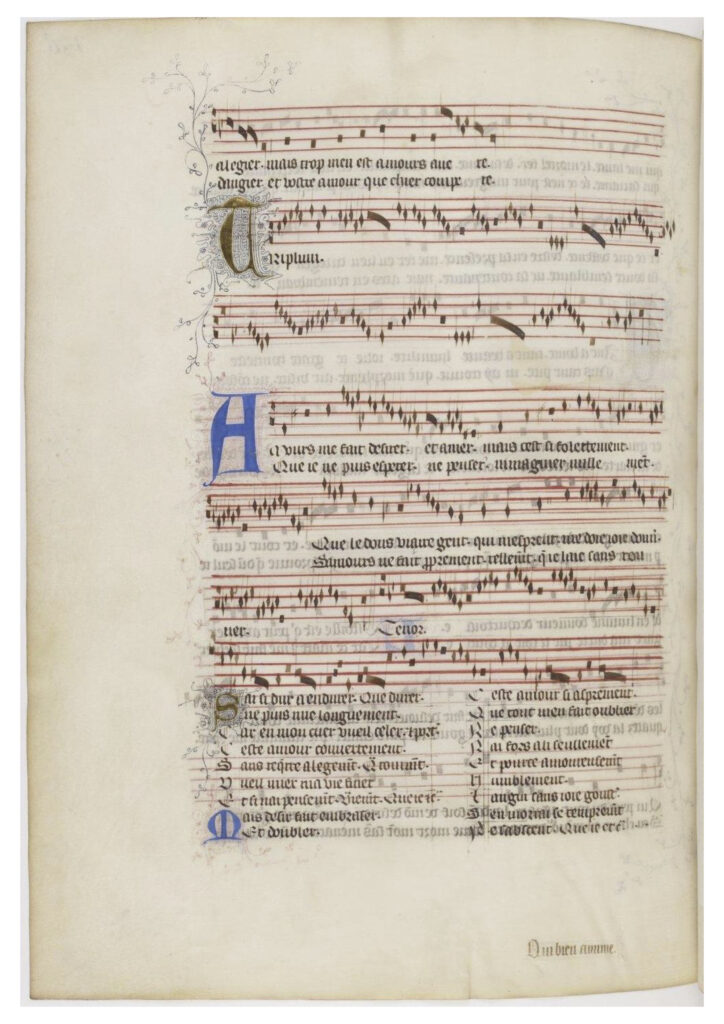 alegier. mais trop men est amours aue re.
dangier et vostre amour que chier compe re.
Triplum.
Amours me fait desirer. et amer. mais cest si folettement.
Que ie ne puis esperer. ne penser. nymaginer nulle ment.
Que le dous viaire gent. qui mesprent. me doie ioie donn.
Samours ne fait pprement. tellemt. q ie laie sans rou
uer. Tenor.
Sai si dur a endurer. Que durer.
ne puis mie longuement.
Car en mon cuer vueil celer.
Ceste amour couuertement.
Sans alegemt.
Vueil mier ma vie finer
Et si nai pensemt. Que ie
Mais desir fait embraser.
Et doubler.
Ceste amour si asprement.
Que tout men fait oublier
Ne penser
Nai fors au seulement
Et pourte amoureusemt
Humblement.
Langui sans ioie gouster.
Sen morrai se temprement
Que ie
Qui bien aimme.